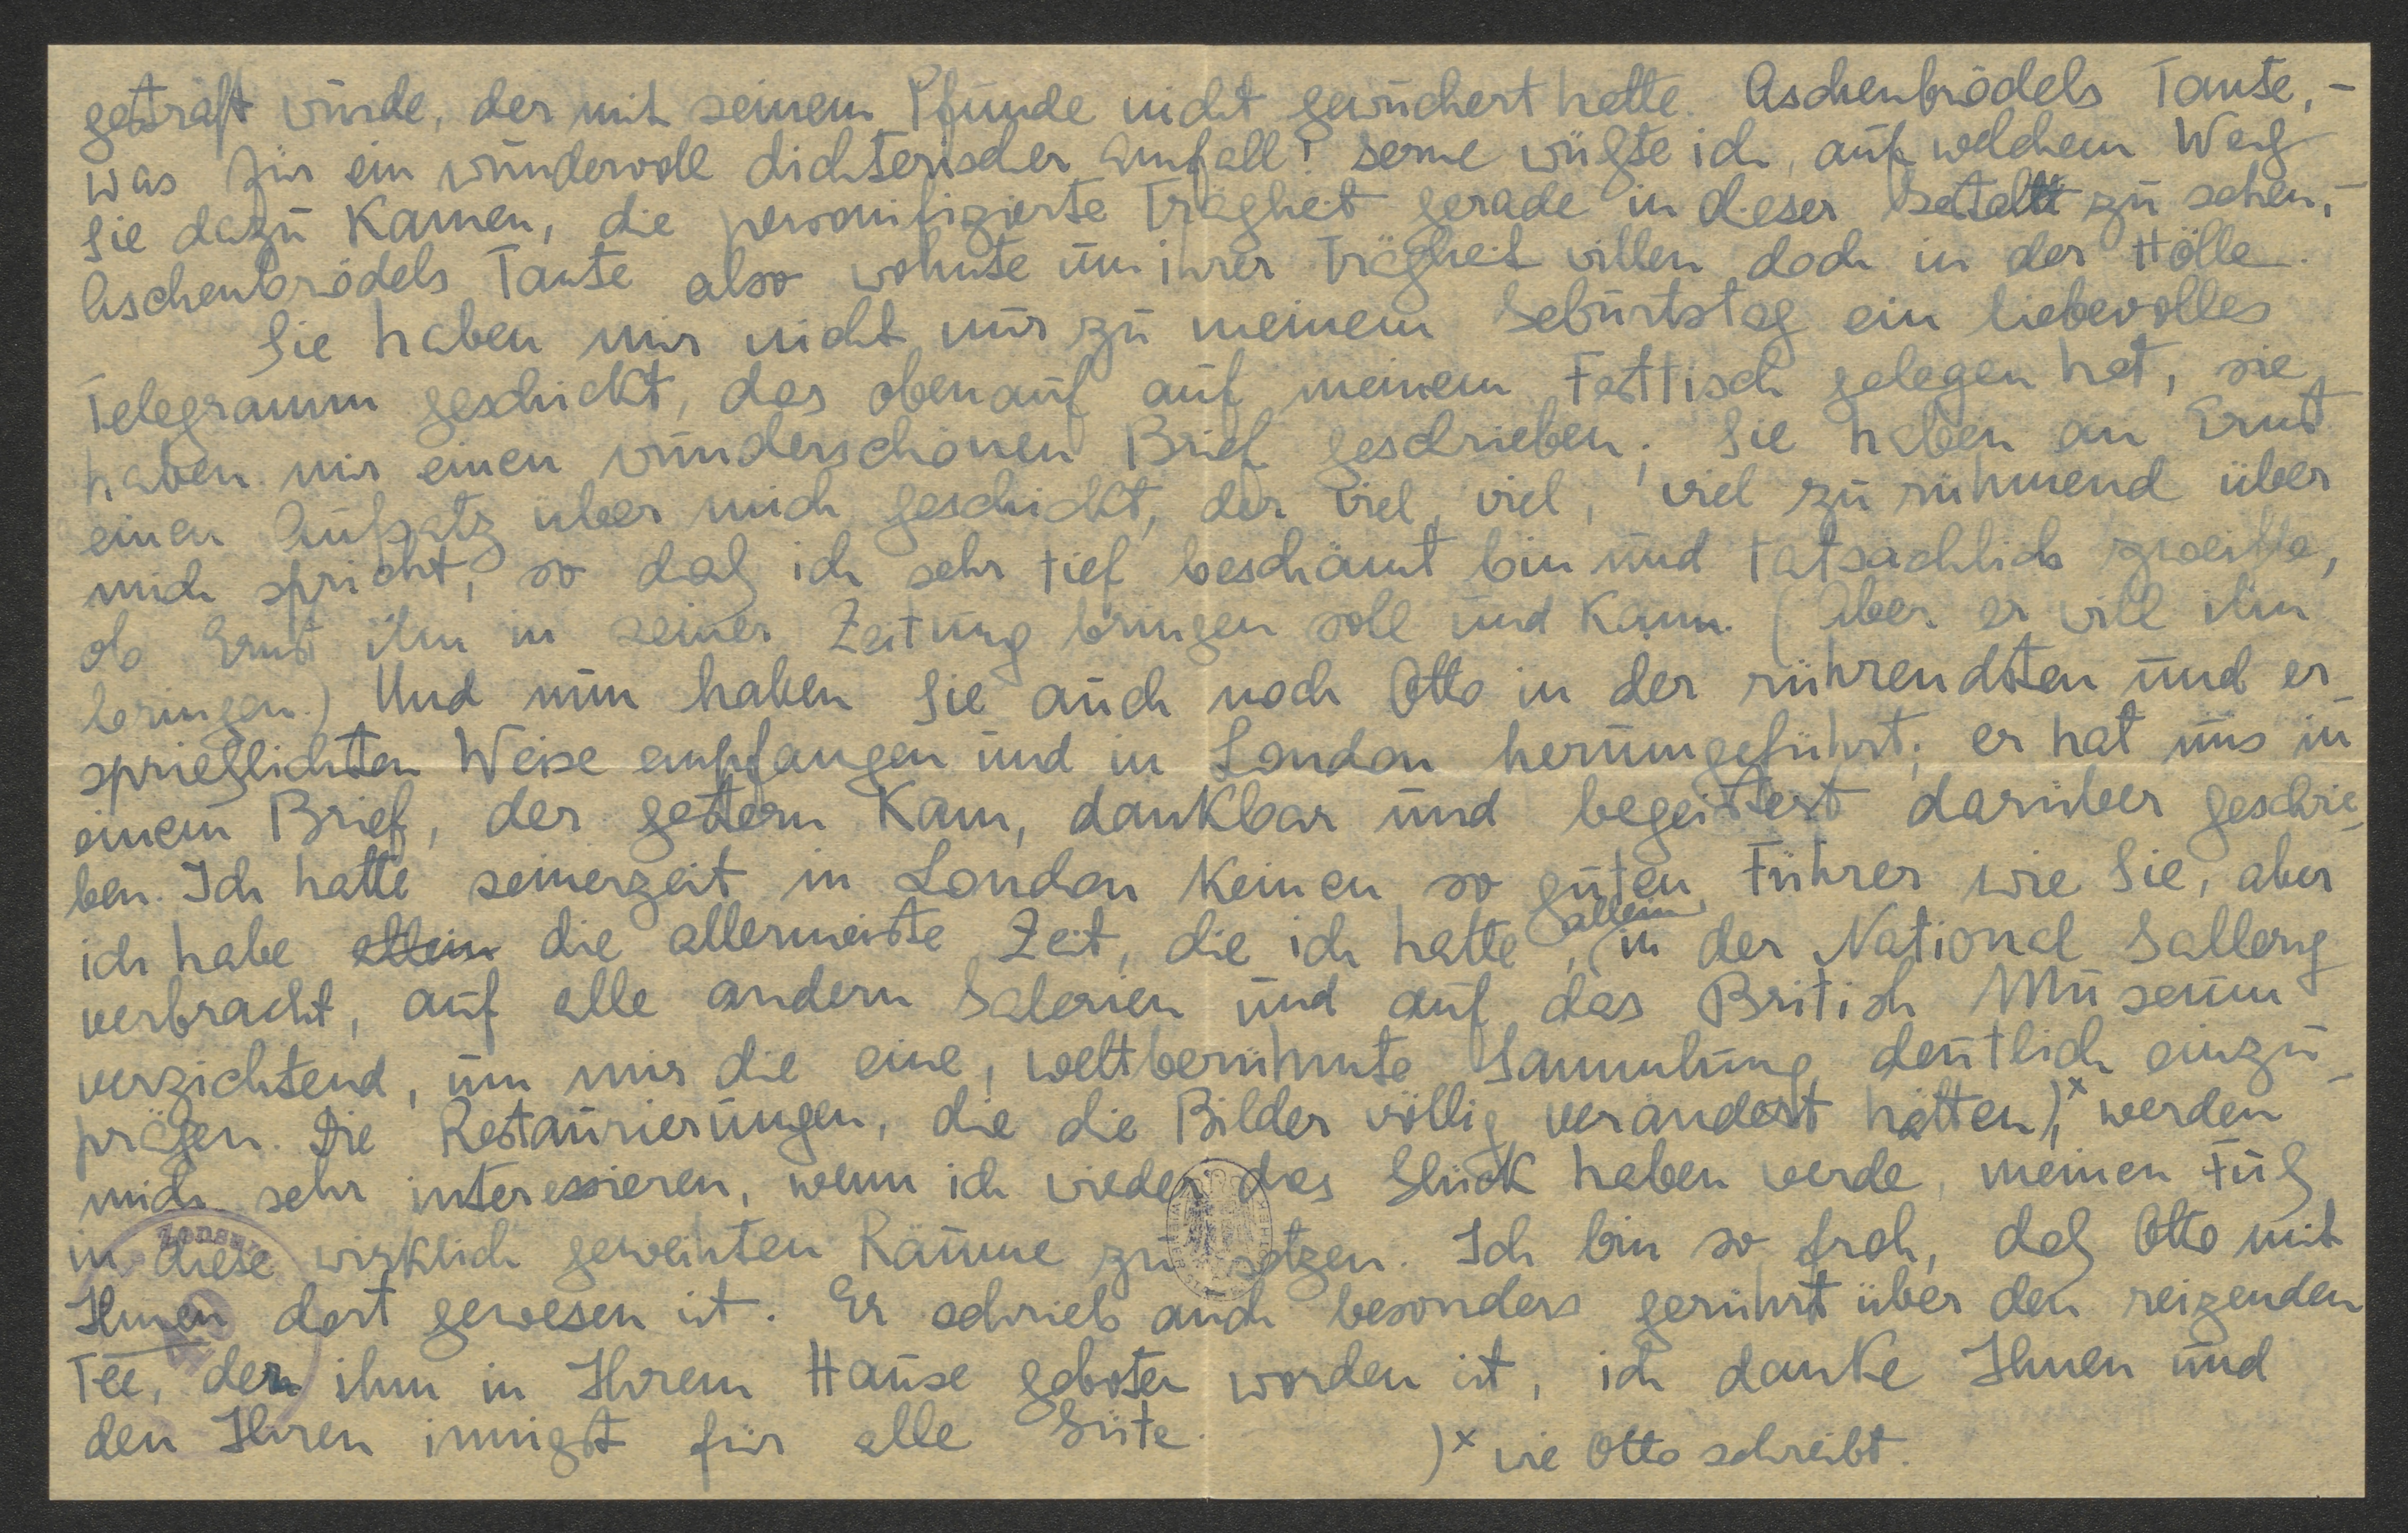 gestraft wurde, der mit seinem Pfunde nicht gewuchert hatte. Aschenbrödels Tante, -
was für ein wundervoll dichterischer Einfall! Gerne wüßte ich, auf welchem Weg
Sie dazu kamen, die personifizierte Trägheit gerade in dieser Gestalt zu sehen, -
Aschenbrödels Tante also wohnte um ihrer Trägheit willen doch in der Hölle.
Sie haben mir nicht nur zu meinem Geburtstag ein liebevolles
Telegramm geschickt, das obenauf auf meinem Festtisch gelegen hat, sie
haben mir einen wunderschönen Brief geschrieben; Sie haben an Ernst
einen Aufsatz über mich geschickt, der viel, viel, viel zu rühmend über
mich spricht, so daß ich sehr tief beschämt bin und tatsächlich zweifle,
ob Ernst ihn in seiner Zeitung bringen soll und kann. (Aber er will ihn
bringen.) Und nun haben Sie auch noch Otto in der rührendsten und er-
sprießlichsten Weise empfangen und in London herumgeführt; er hat uns in
einem Brief, der gestern kam, dankbar und begeistert darüber geschrie-
ben. Ich hatte seinerzeit in London keinen so guten Führer wie Sie, aber
ich habe allein die allermeiste Zeit, die ich hatte, allein in der National Gallery
verbracht, auf alle andern Galerien und auf das British Museum
verzichtend, um mir die eine, weltberühmte Sammlung deutlich einzu-
prägen. Die Restaurierungen, die die Bilder völlig verändert hätten,)x werden
mich sehr interessieren, wenn ich wieder das Glück haben werde, meinen Fuß
in diese wirklich geweihten Räume zu setzen. Ich bin so froh, daß Otto mit
Ihnen dort gewesen ist. Er schrieb auch besonders gerührt über den reizenden
Tee, der ihm in Ihrem Hause geboten worden ist, ich danke Ihnen und
den Ihren innigst für alle Güte.
)x wie Otto schreibt.